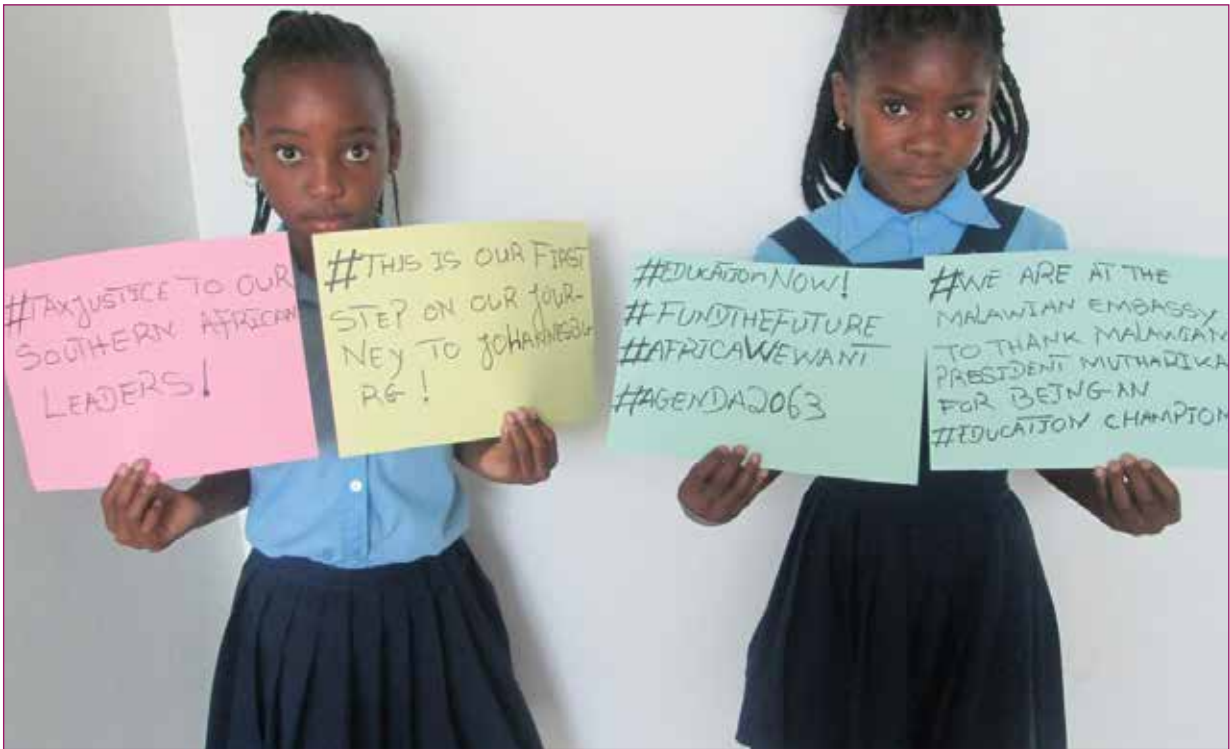 #TAXJUSTICE TO OUR
SOUTHERN AFRICAN
LEADERS!
#THIS IS OUR FIRST
STEP ON OUR JOUR-
NEY TO JOHANNESBU
RG!
#EDUCATIONNOW!
#FUNDTHEFUTURE
#AFRICAWEWANT
#AGENDA2063
#WE ARE AT THE
MALAWIAN EMBASSY
TO THANK MALAWIAN
PRESIDENT MUTHARIKA
FOR BEING AN
#EDUCATION CHAMPION